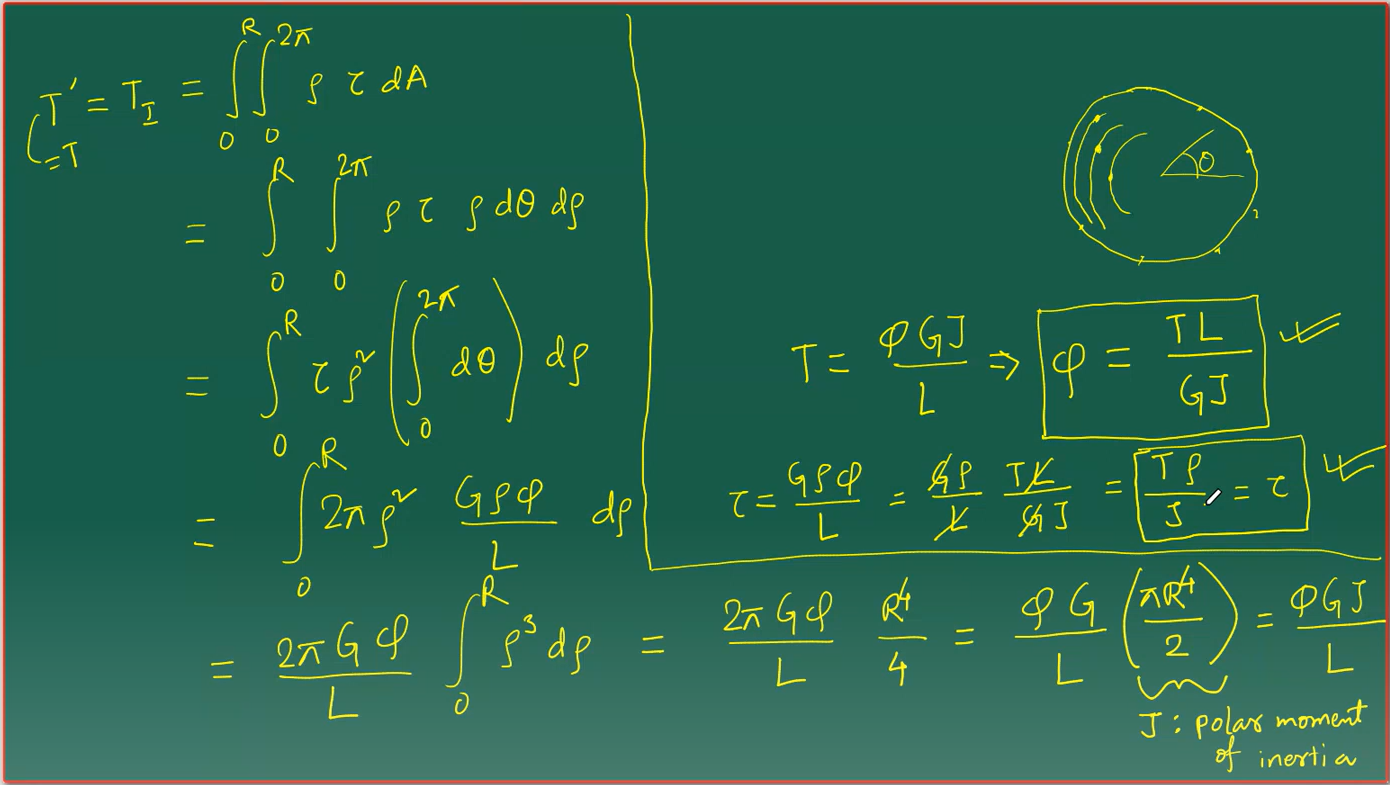 T′ = T_I = ∫₀^R ∫₀^2π ρ τ dA
(= T
= ∫₀^R ∫₀^2π ρ τ ρ dθ dρ
= ∫₀^R τ ρ² (∫₀^2π dθ) dρ
= ∫₀^R 2π ρ² Gρφ/L dρ
= 2π G φ/L ∫₀^R ρ³ dρ = 2π G φ/L R⁴/4 = φ G/L (πR⁴/2) = φGJ/L
J : polar moment
of inertia
θ
T = φGJ/L ⇒ φ = TL/GJ
τ = Gρφ/L = Gρ/L TL/GJ = Tρ/J = τ